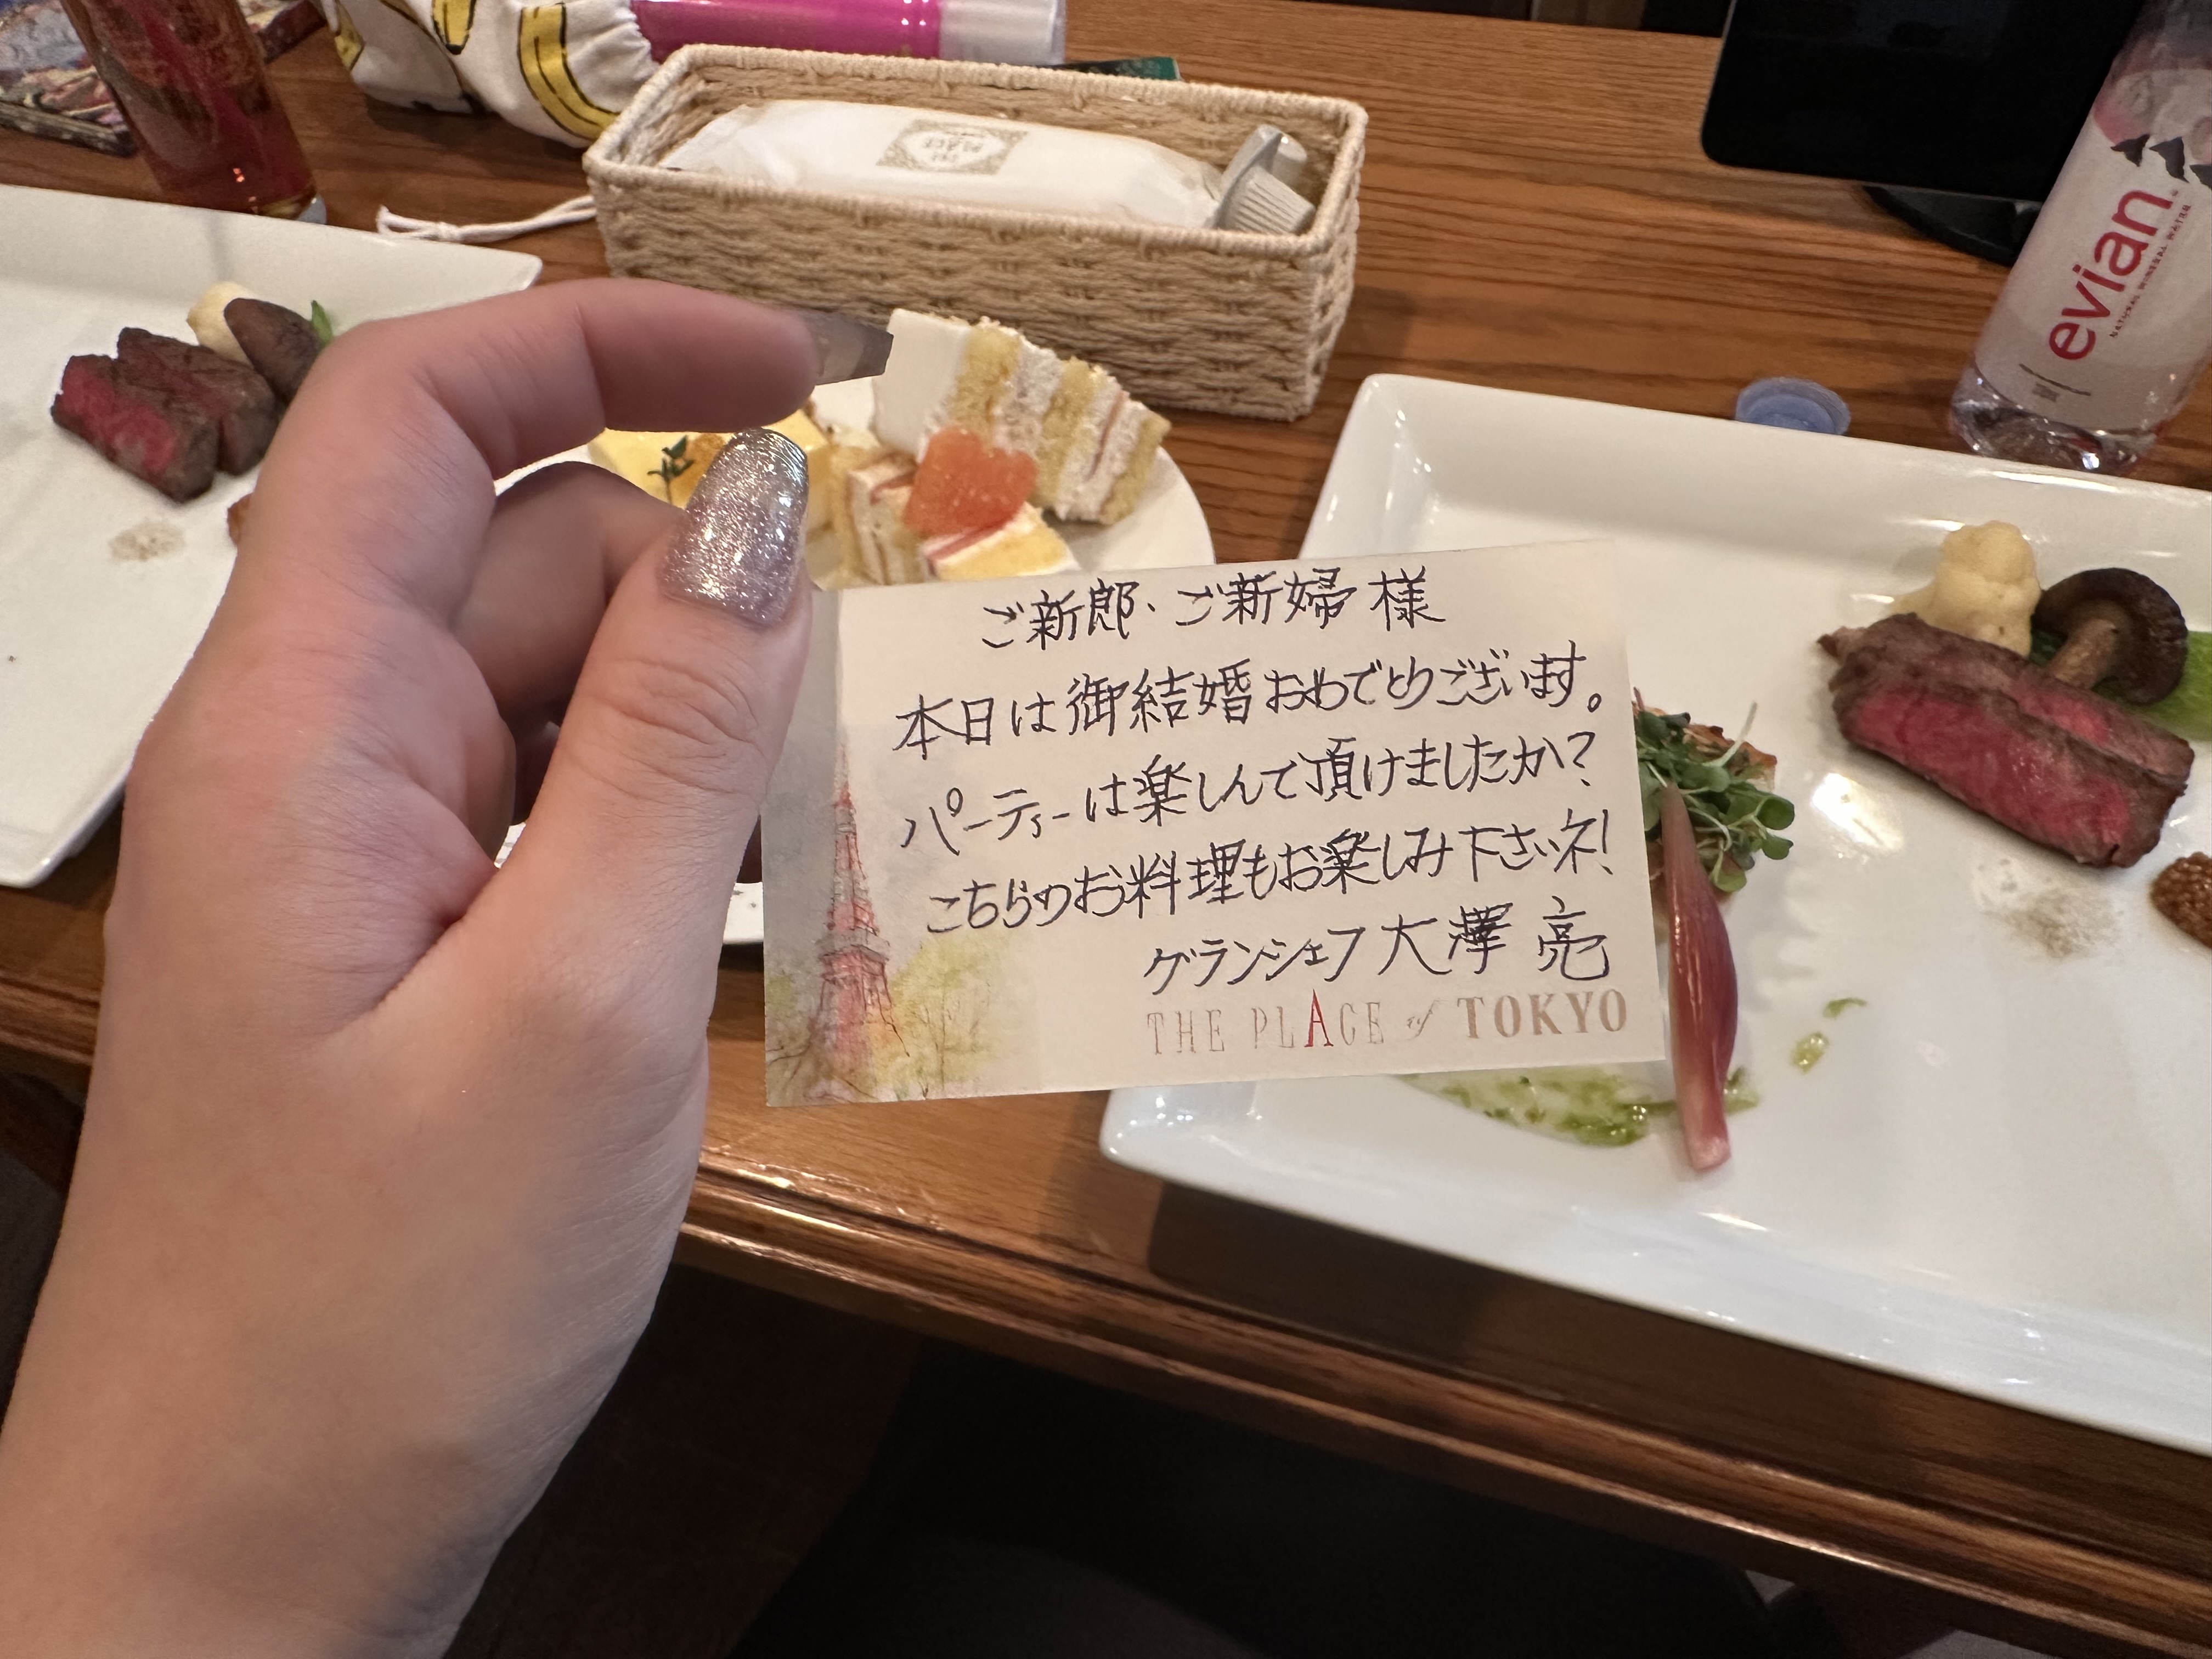 ご新郎、ご新婦 様
本日は御結婚おめでとうございます。
パーティーは楽しんで頂けましたか?
こちらのお料理もお楽しみ下さいネ!
グランシェフ 大澤 亮
THE PLACE of TOKYO
evian
NATURAL MINERAL WATER
THE PLACE